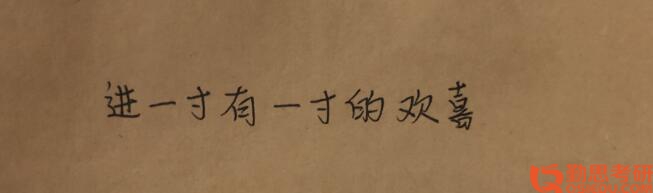 进一寸有一寸的欢喜
勤思考研